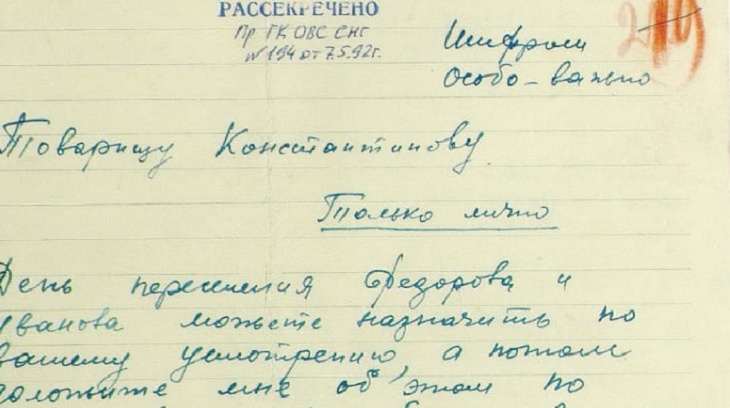 РАССЕКРЕЧЕНО
Пр ГК ОВС СНГ
№ 194 от 7.5.92г.
Шифром
Особо-важно
Товарищу Константинову
Только лично
День переселения Федорова и
Иванова можете назначить по
вашему усмотрению, а потом
доложите мне об этом по